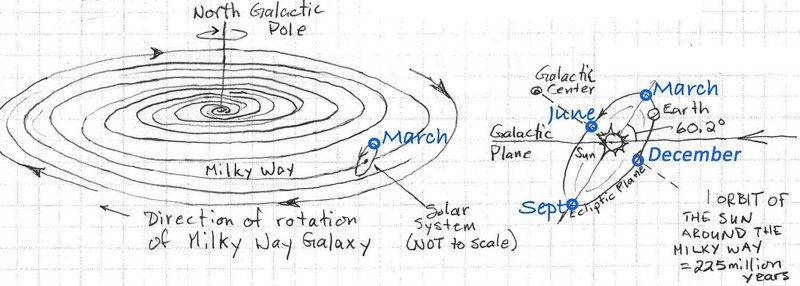 North Galactic
Pole
March
Milky Way
Direction of rotation
of Milky Way Galaxy
Solar
System
(NOT to scale)
Galactic
Center
March
June
Earth
60.2°
Galactic
Plane
Sun
December
Sept
Ecliptic Plane
1 ORBIT OF
THE SUN
AROUND THE
MILKY WAY
= 225 million
years